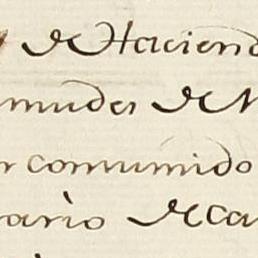 de Haciend
mudes de M
r comumido
ario de ca